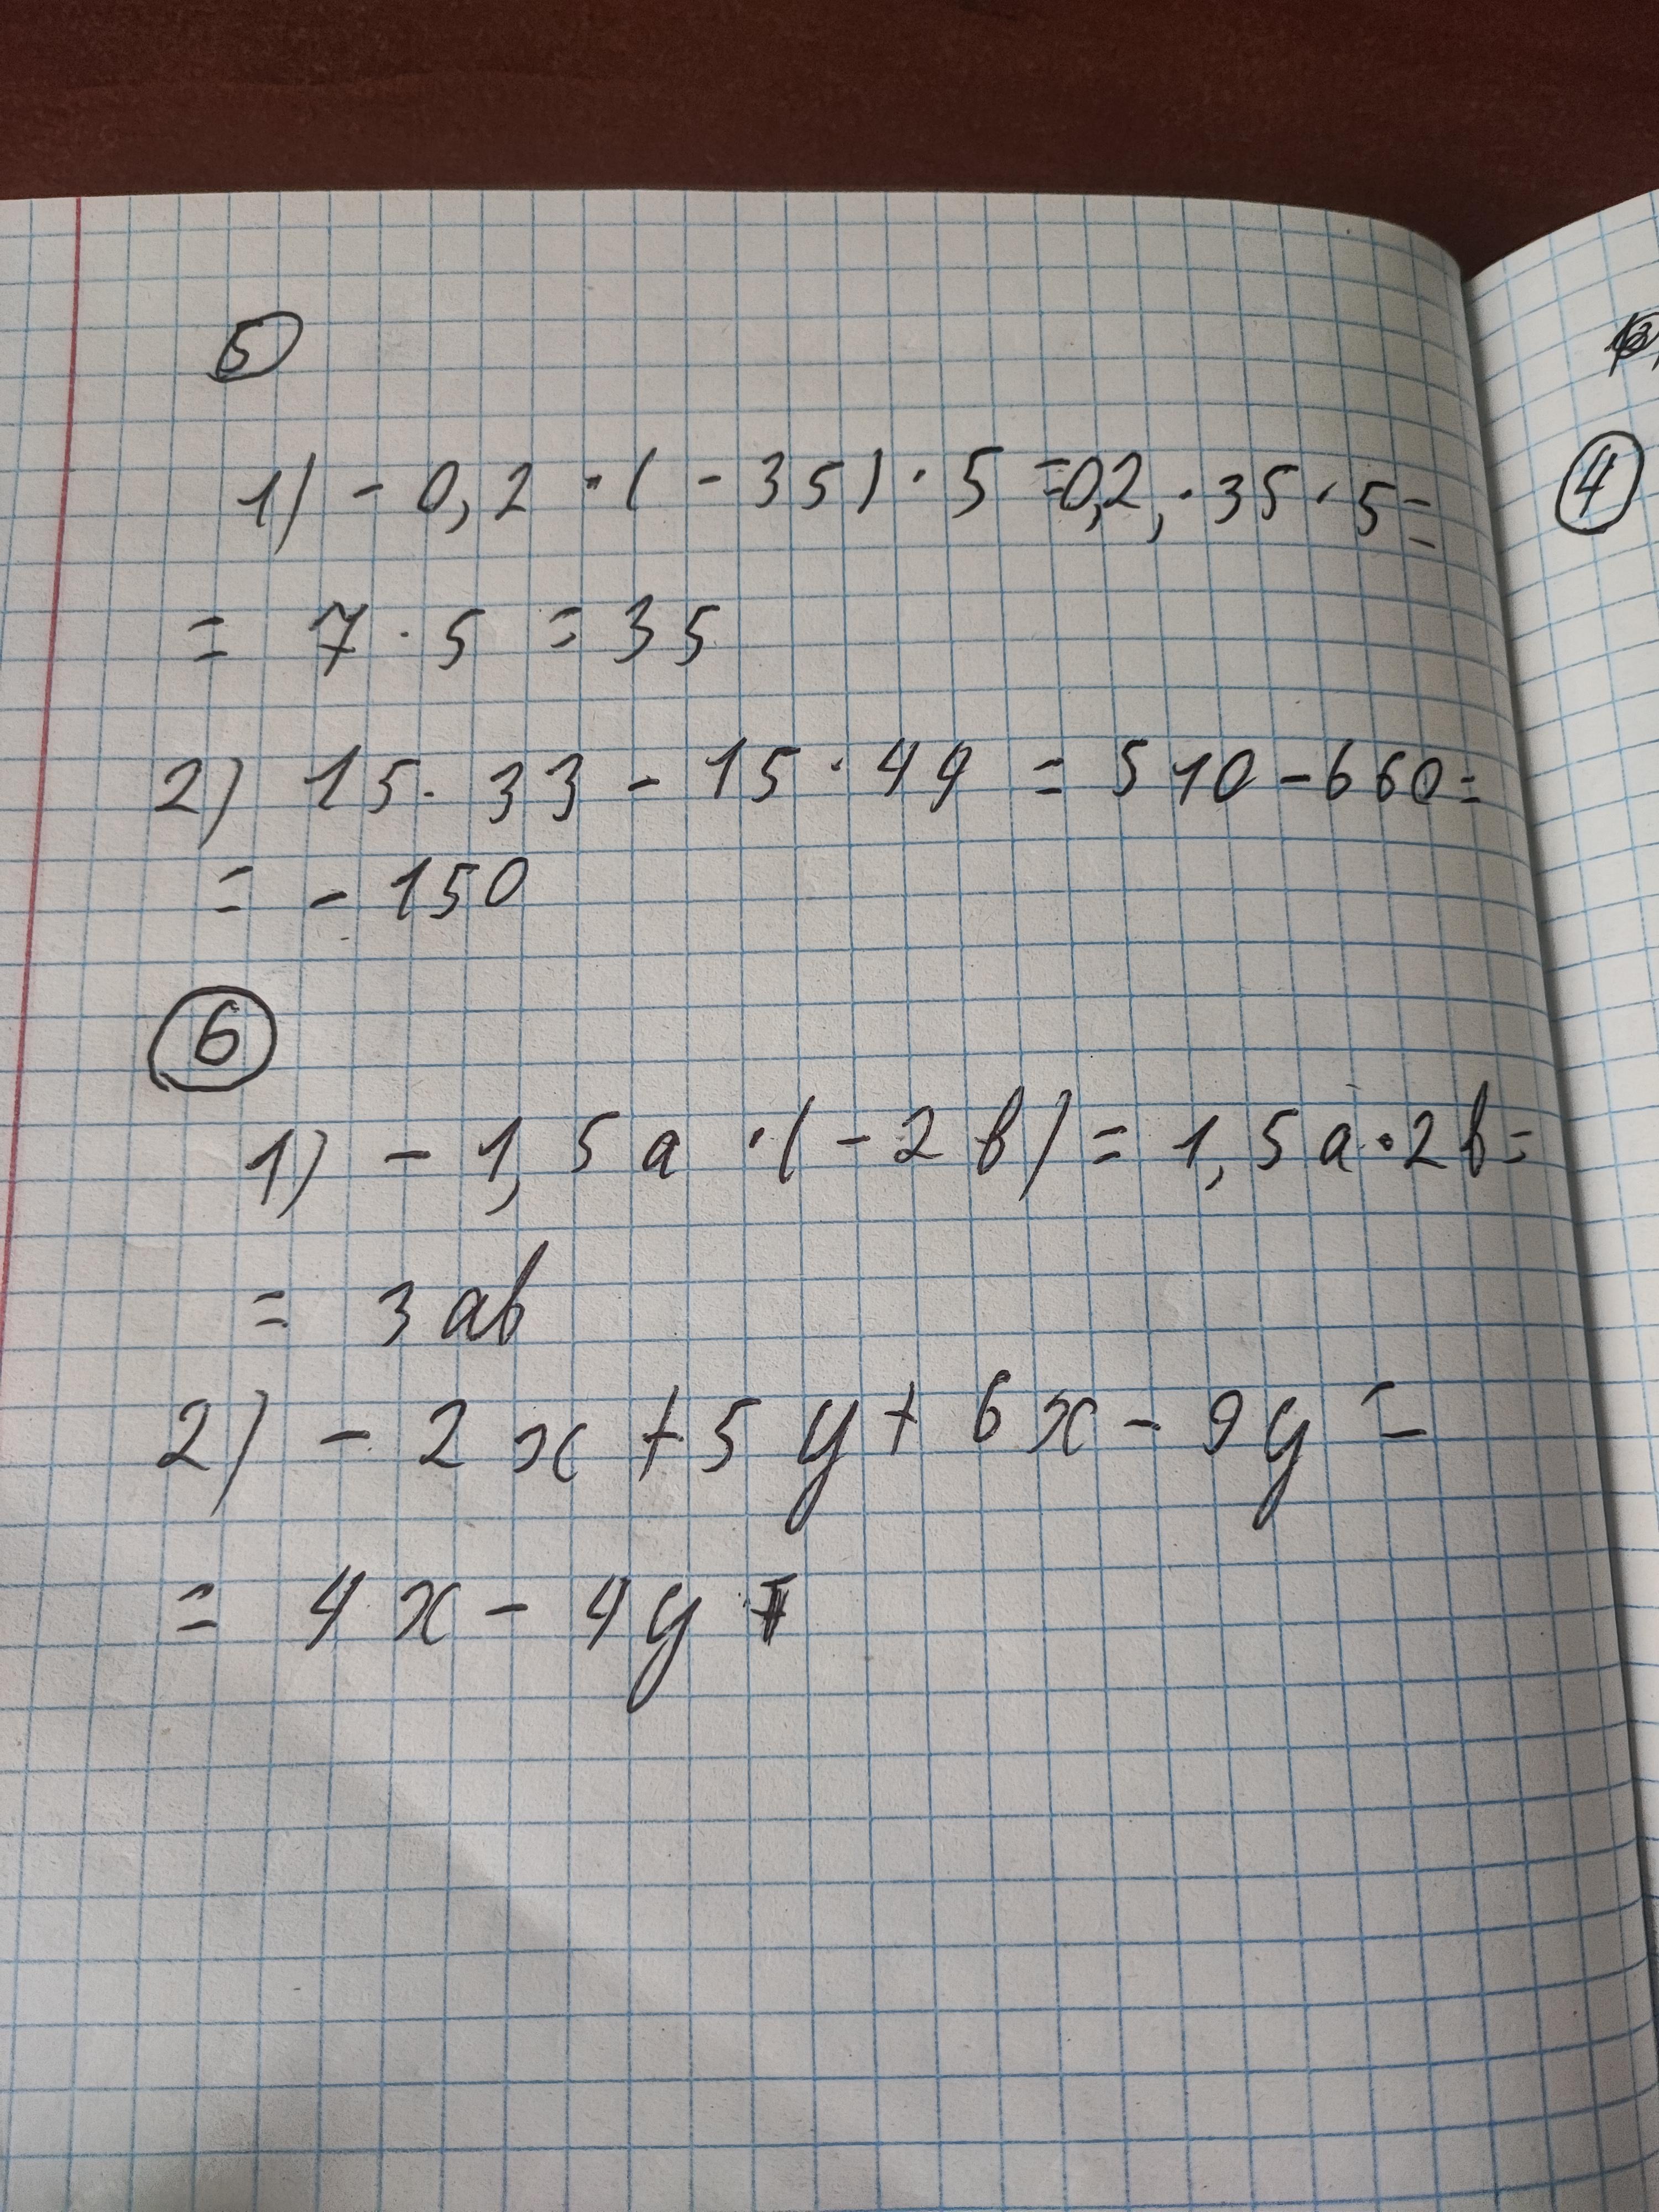 5
1) - 0,2 · (- 35) · 5 = 0,2, · 35 · 5 =
= 7 · 5 = 35
2) 15 · 33 - 15 · 44 = 510 - 660 =
= - 150
6
1) - 1,5a · (- 2b) = 1,5a · 2b =
= 3ab
2) - 2x + 5y + 6x - 9y =
= 4x - 4y
4